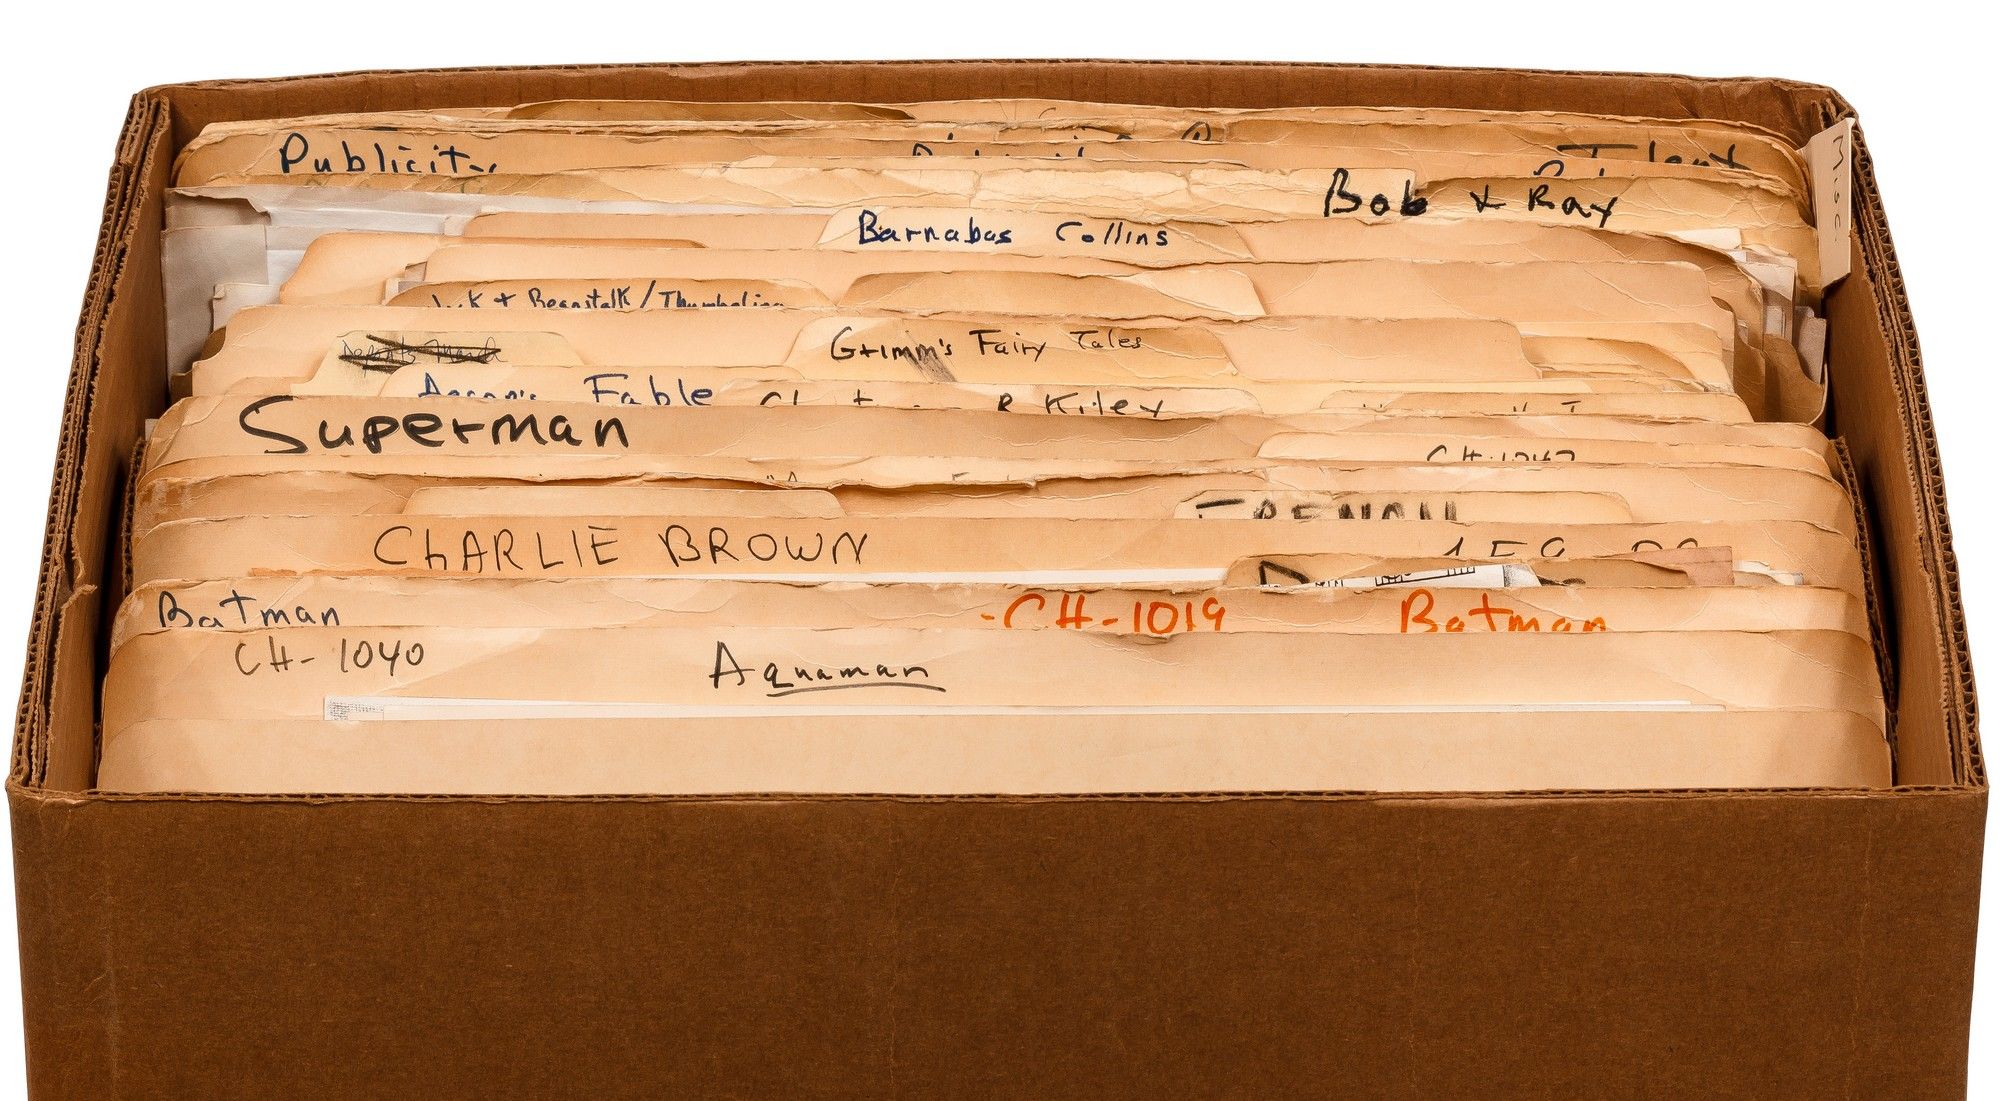 Publicity
Talent
Misc.
Bob & Ray
Barnabas Collins
Jack & Beanstalk / Thumbelina
Grimm's Fairy Tales
Aesop's Fable
& Kiley
Superman
CH-1047
FRENCH
CHARLIE BROWN
Batman
-CH-1019 Batman
CH-1040 Aquaman